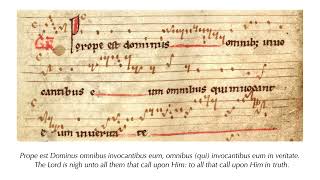 GR Prope est dominus omnib; inuo
cantibus e um omnibus qui inuocant
e um inuerita te
Prope est Dominus omnibus invocantibus eum, omnibus (qui) invocantibus eum in veritate.
The Lord is nigh unto all them that call upon Him: to all that call upon Him in truth.